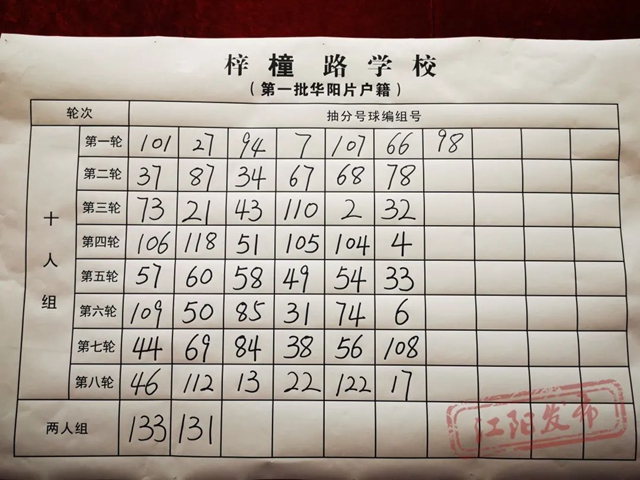 梓橦路学校
（第一批华阳片户籍）
轮次 抽分号球编组号
十人组
第一轮 101 27 94 7 107 66 98
第二轮 37 87 34 67 68 78
第三轮 73 21 43 110 2 32
第四轮 106 118 51 105 104 4
第五轮 57 60 58 49 54 33
第六轮 109 50 85 31 74 6
第七轮 44 69 84 38 56 108
第八轮 46 112 13 22 122 17
两人组 133 131
江阳发布